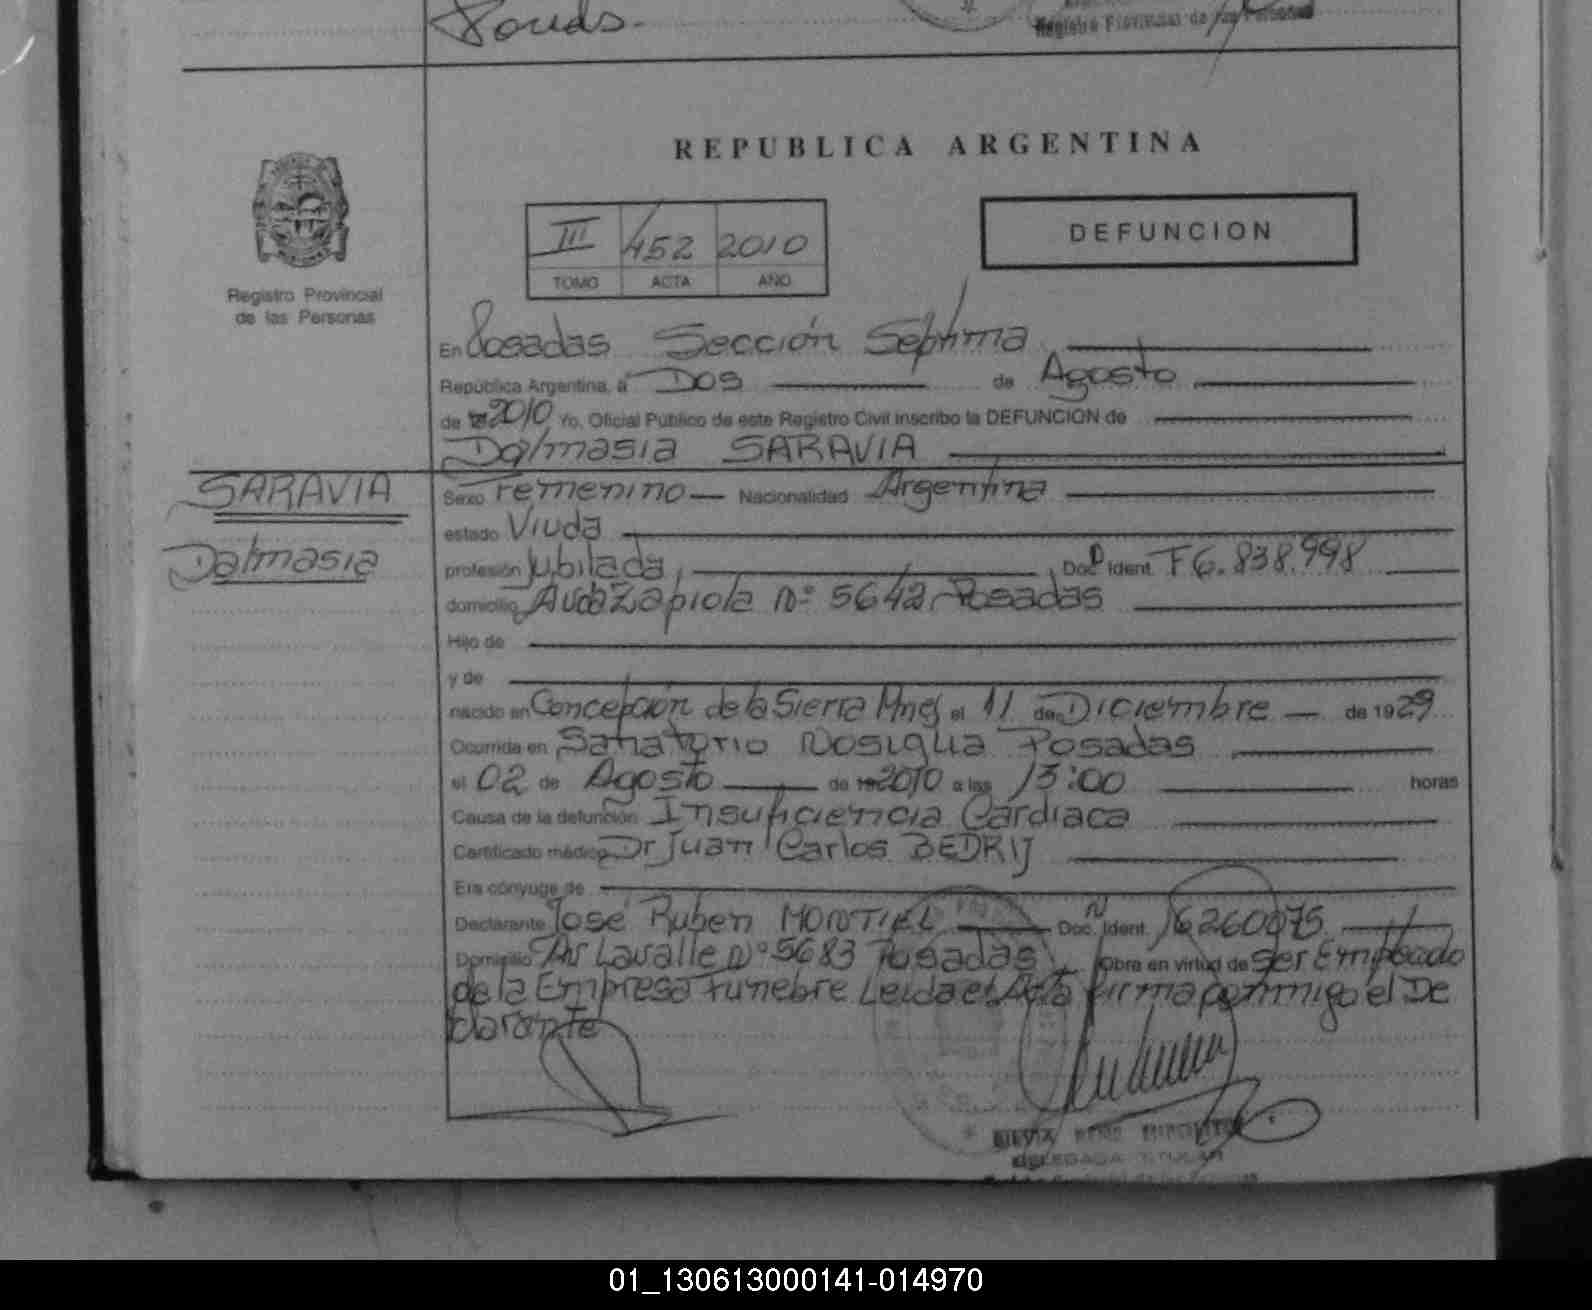 Registro Provincial de las Personas
REPUBLICA ARGENTINA
III 452 2010
TOMO ACTA AÑO
DEFUNCION
Registro Provincial
de las Personas
En Posadas Sección Septima
República Argentina, a Dos de Agosto
de 2010 Yo, Oficial Público de este Registro Civil inscribo la DEFUNCION de
Dalmasia SARAVIA
SARAVIA
Dalmasia
Sexo Femenino Nacionalidad Argentina
estado Viuda
profesión Jubilada, Doc. Ident. F 6.838.998
domicilio Avda Zapiola Nº 5642 Posadas
Hijo de
y de
nacido en Concepción de la Sierra Mnes el 11 de Diciembre de 1929
Ocurrida en Sanatorio Nosiglia Posadas
el 02 de Agosto de 2010 a las 13:00 horas
Causa de la defunción Insuficiencia Cardiaca
Certificado médico Dr Juan Carlos BEDRIJ
Era cónyuge de
Declarante José Ruben MONTIEL Doc. Ident. 16260075
Domicilio Av Lavalle Nº 5683 Posadas Obra en virtud de ser Empleado
de la Empresa Funebre Leida el Acta firma conmigo el De
clarante
DELEGADA TITULAR
01_130613000141-014970